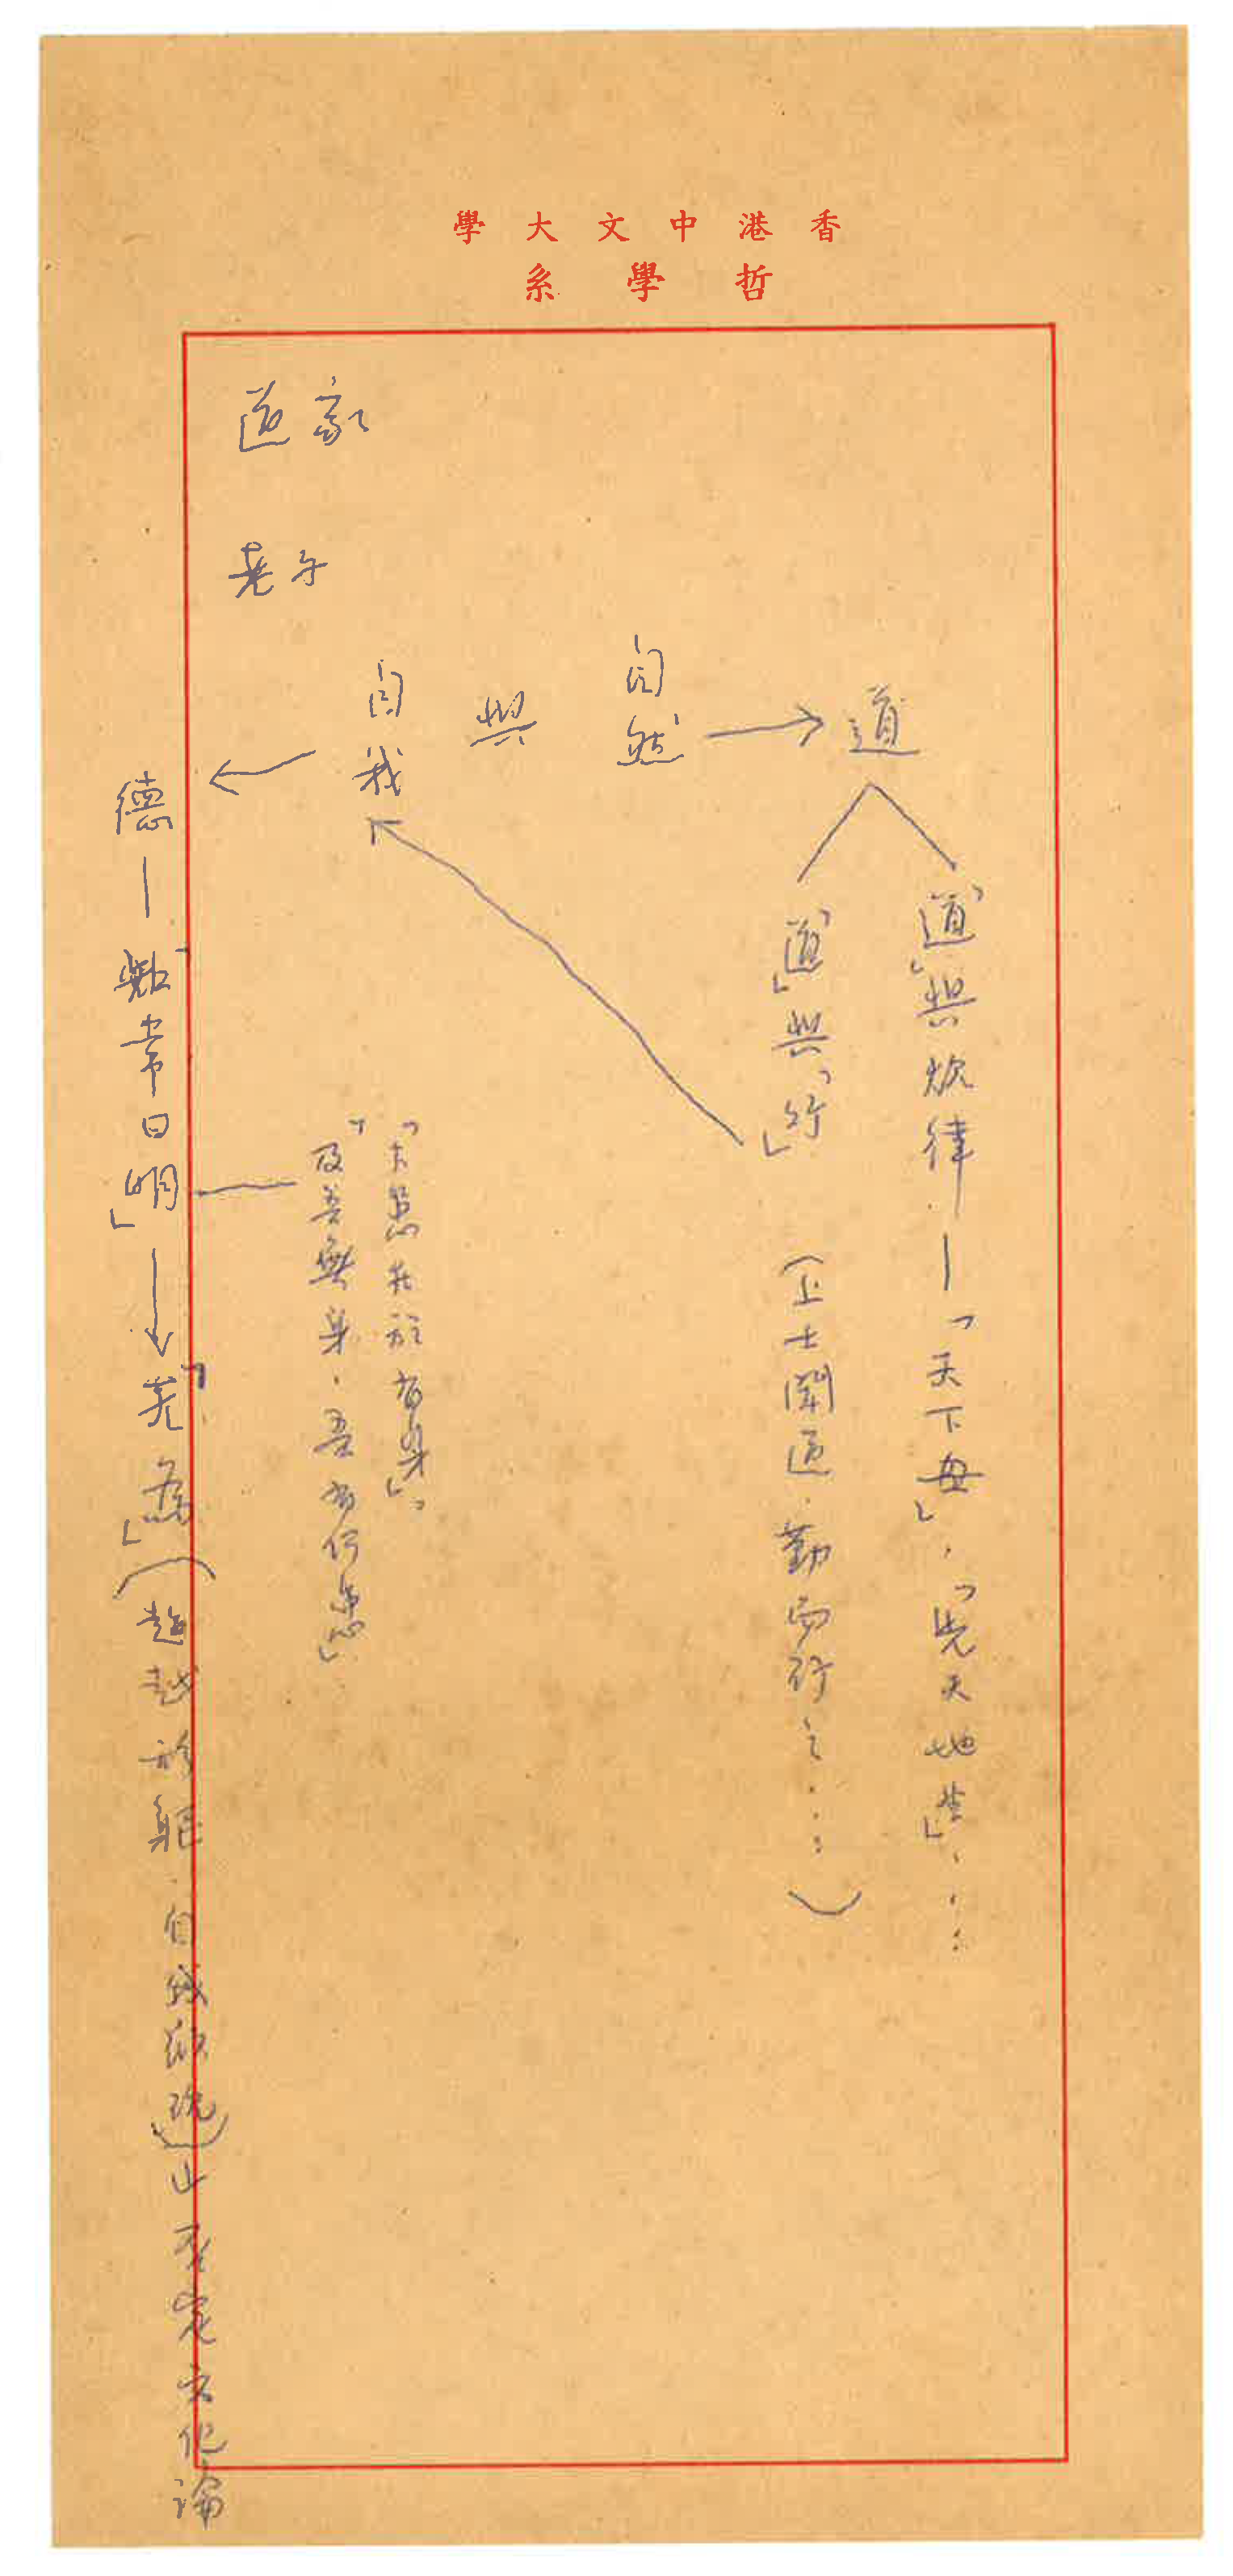 香港中文大學
哲學系
道家
老子
自我 與 自然 → 道
「道」與規律—「天下母」,「先天地生」……
「道」與「行」(上士聞道,勤而行之……)
「大患在於有身」,
「及吾無身,吾有何患」
德—「知常曰明」→「無為」(超越形軀,自我 說)
論